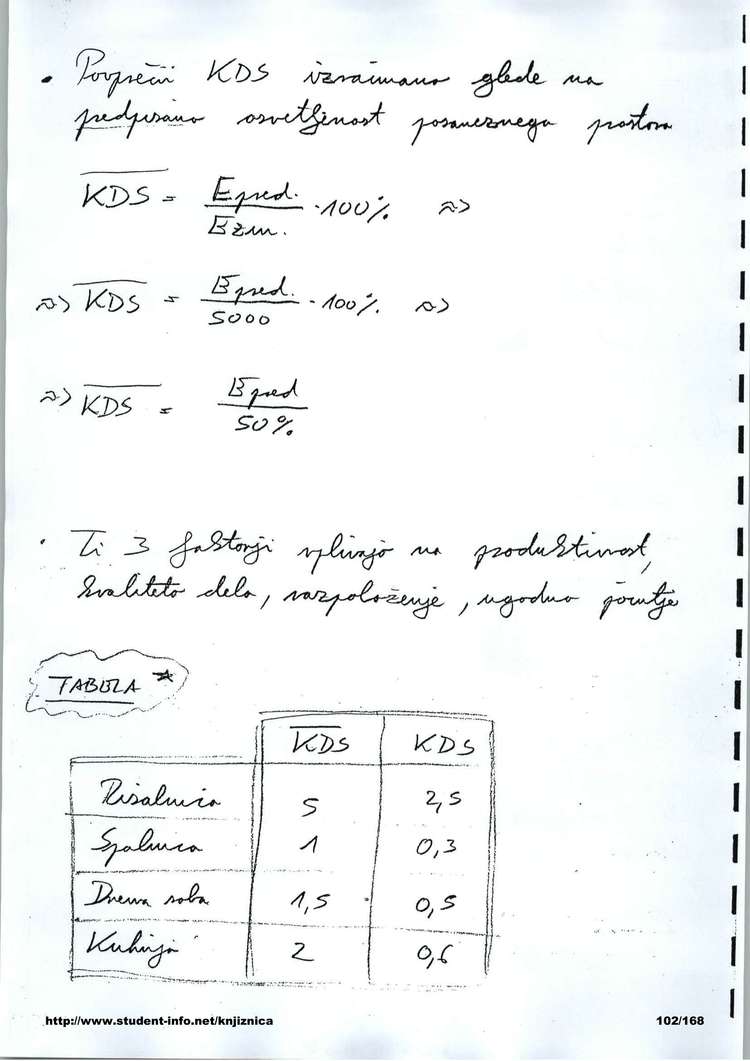 • Povprečni KDS izračunano glede na
predpisano osvetljenost posameznega prostora
KDS = Epred. / Ezm. · 100% =>
=> KDS = Epred. / 5000 · 100% =>
=> KDS = Epred / 50 %
• Ti 3 faktorji vplivajo na produktivnost,
kvaliteto dela, razpoloženje, ugodno počutje
TABELA *
KDS KDS
Risalnica 5 2,5
Spalnica 1 0,3
Dnevna soba 1,5 0,5
Kuhinja 2 0,6
http://www.student-info.net/knjiznica 102/168